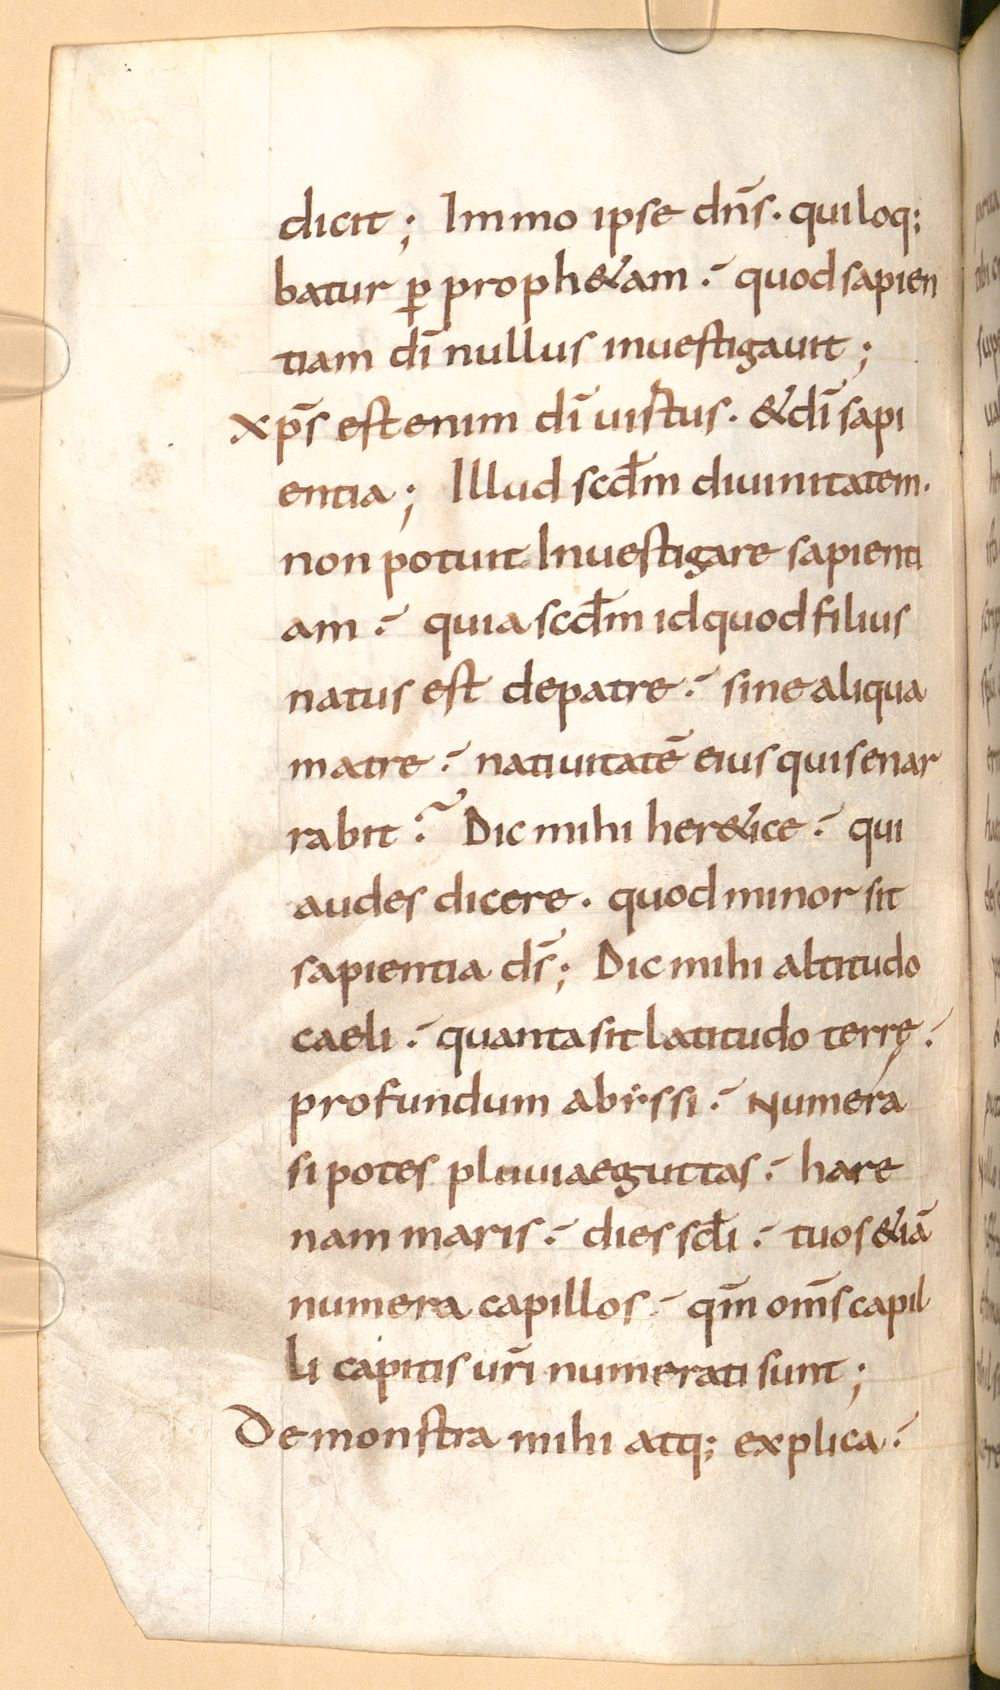 dicit; Immo ipse dn̄s. qui loq;
batur ꝑ proph&am :- quod sapien
tiam dī nullus inuestigauit;
xp̄s est enim dī uirtus. & dī sapi
entia; Illud scd̄m diuinitatem.
non potuit Inuestigare sapienti
am :- quia scd̄m id quod filius
natus est de patre :- sine aliqua
matre :- natiuitatē eius quis enar
rabit :~ Dic mihi her&ice :- qui
audes dicere. quod minor sit
sapientia ds̄; Dic mihi altitudo
caeli :- quanta sit latitudo terrę :-
profundum abissi :- Numera
si potes pluuiae guttas :- hare
nam maris :- dies scl̄i :- tuos &iā
numera capillos :- qm̄ om̄s capil
li capitis ur̄i numerati sunt;
Demonstra mihi atq; explica :-